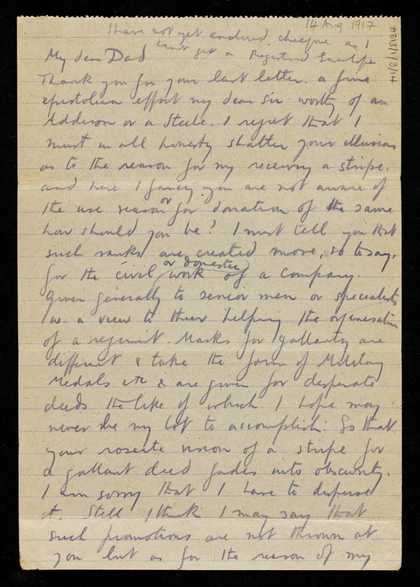 14 Aug 1917
I have not yet enclosed cheque as I
cannot get a Registered Envelope
My dear Dad
Thank you for your last letter. a fine
epistolian effort my dear sir worthy of an
Addison or a Steele. I regret that I
must in all honesty shatter your illusion
as to the reason for my receiving a stripe.
and here I fancy you are not aware of
the use or reason for donation of the same
how should you be? I must tell you that
such ranks are created more, so to say,
for the civil or domestic work of a company.
given generally to senior men or specialists
w. a view to their helping the organisation
of a regiment. Marks for gallantry are
different & take the form of Military
Medals etc & are given for desperate
deeds the like of which I hope may
never be my lot to accomplish: So that
your roseate vision of a stripe for
a gallant deed fades into obscurity.
I am sorry that I have to disperse
it. Still I think I may say that
such promotions are not thrown at
you but as for the reason of my